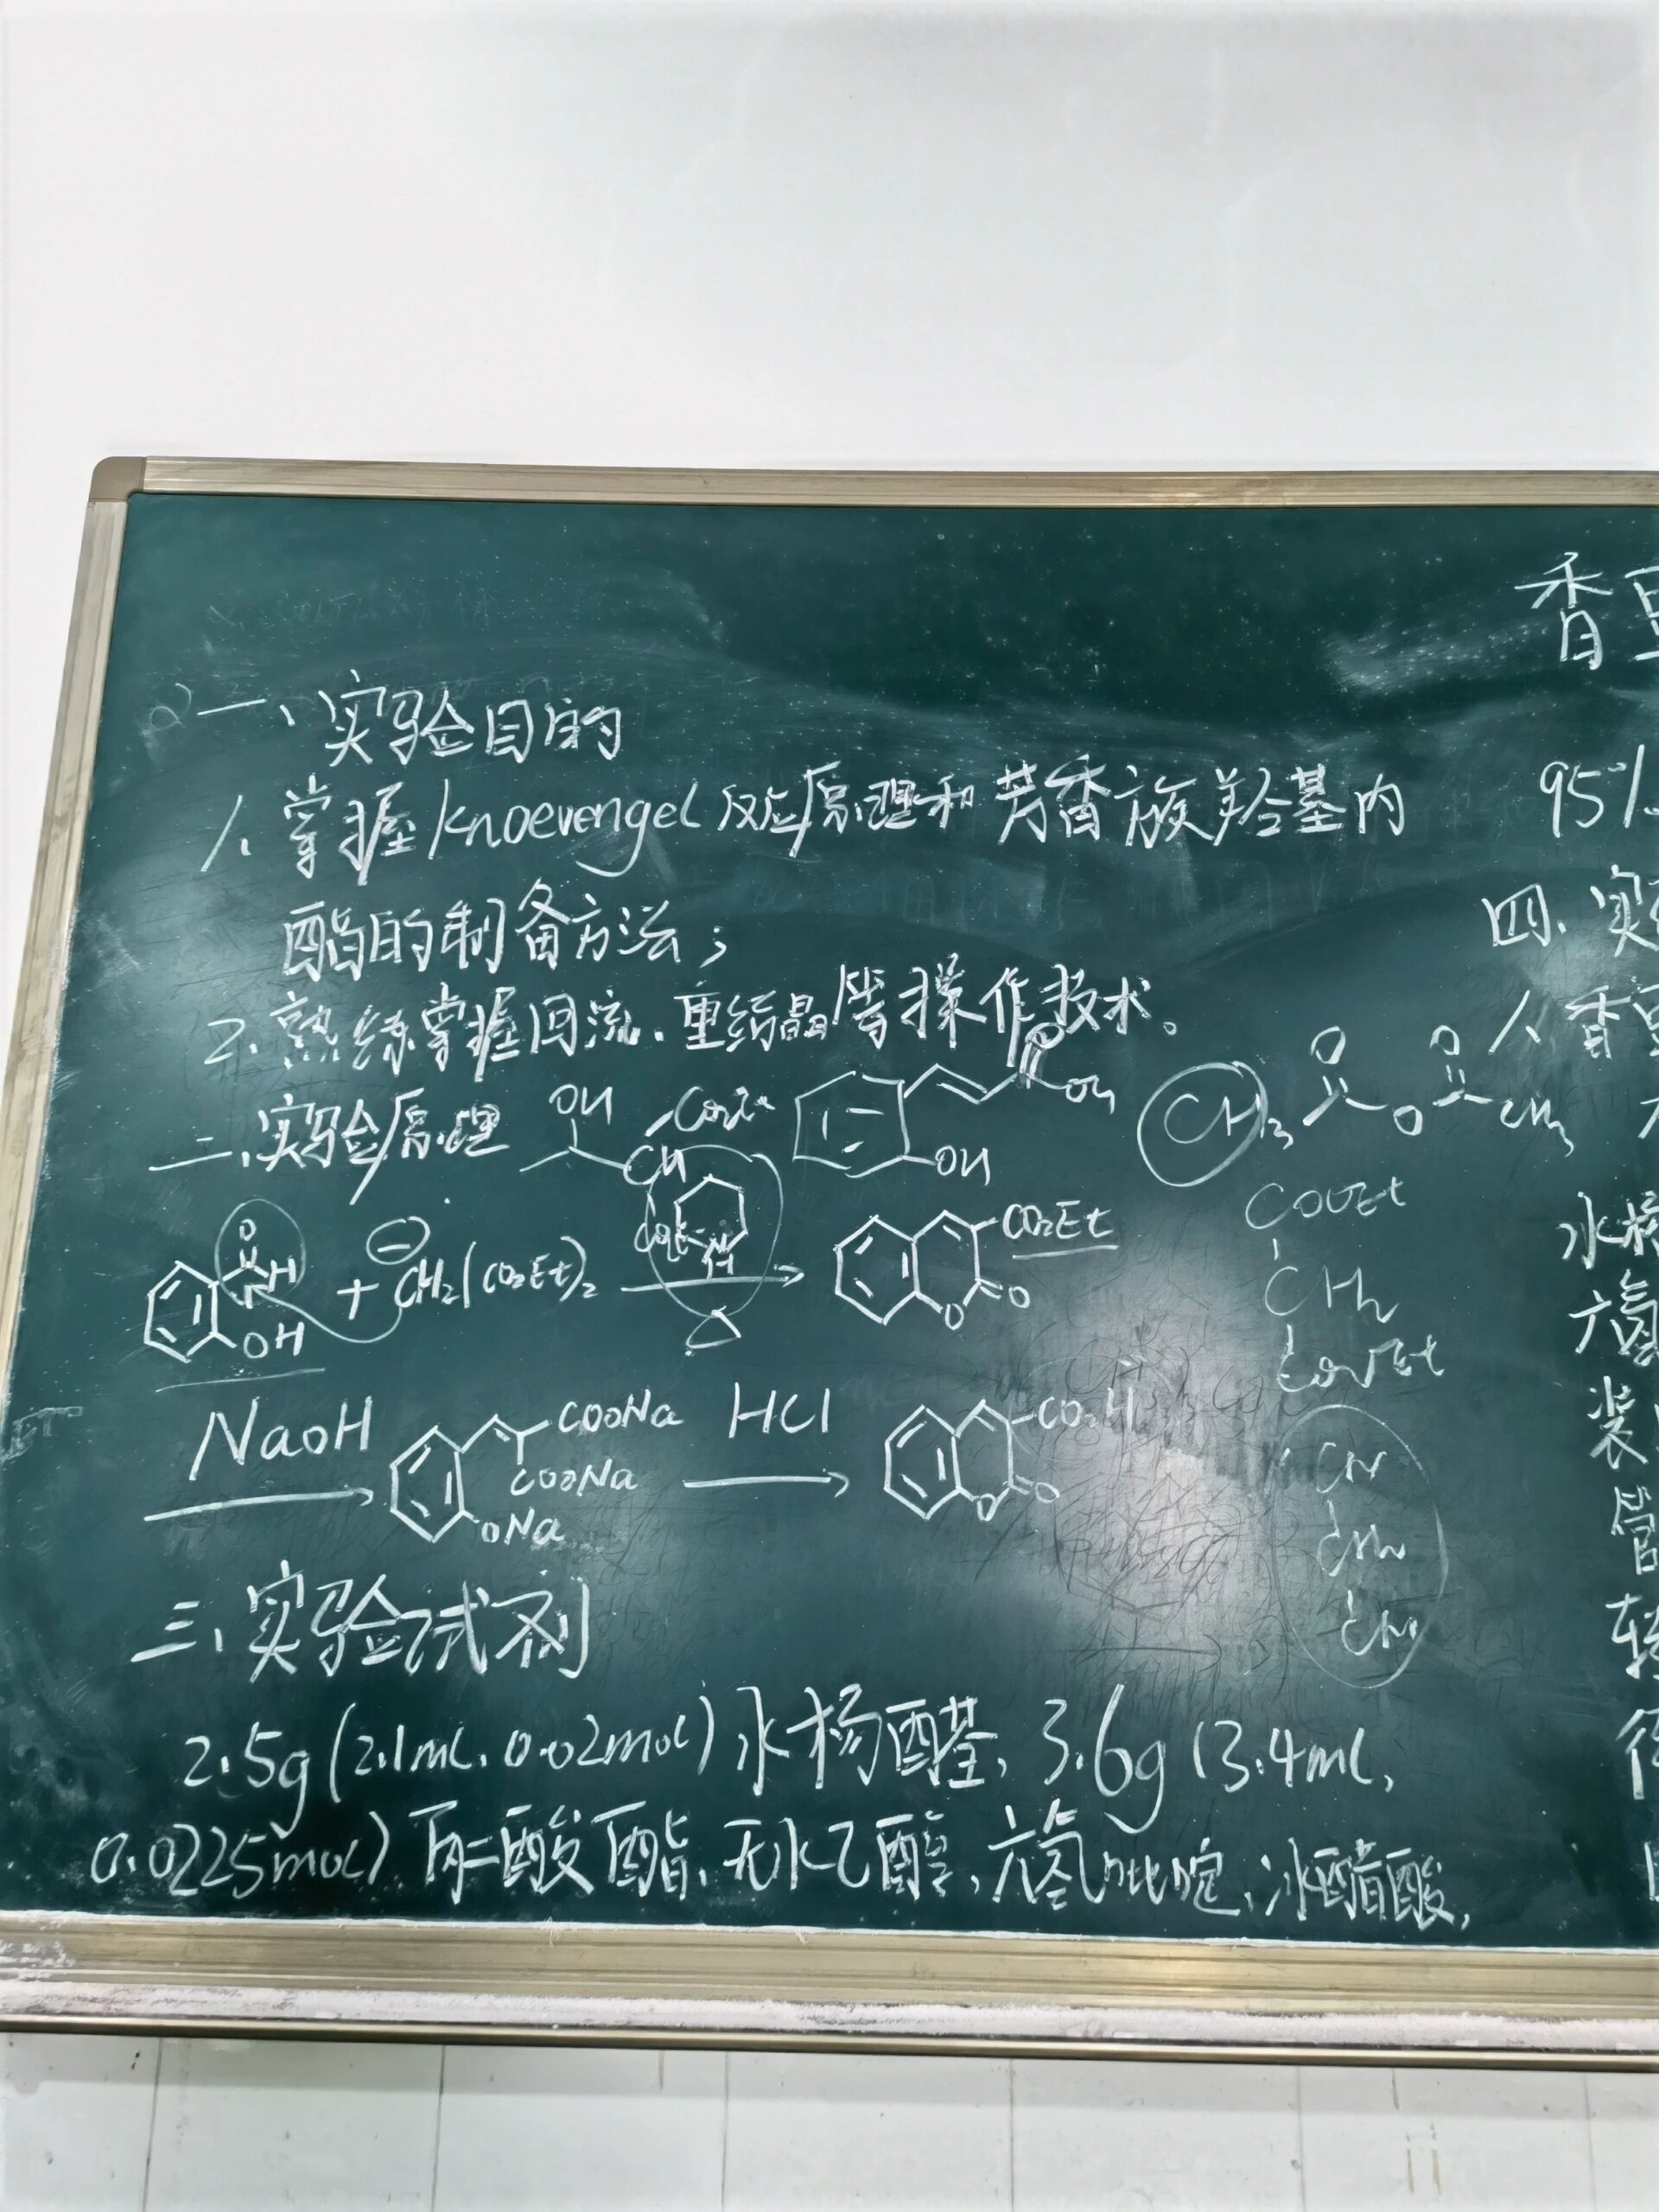 一、实验目的
1. 掌握Knoevengel反应原理和芳香族羟基内
酯的制备方法；
2. 熟练掌握回流、重结晶等操作技术。
二、实验原理
OH
OH
OH
CH3 O O O CH3
O H OH + ⊖ CH2(CO2Et)2 N H Δ CO2Et O O
COOEt
CH2
COOEt
NaOH COONa COONa ONa HCl CO2H O O
三、实验试剂
2.5g(2.1mL. 0.02mol)水杨醛, 3.6g (3.4mL,
0.0225mol) 丙二酸酯, 无水乙醇, 六氢吡啶, 冰醋酸,
香
95%
四、实
1. 香
水杨
六氢
装
管